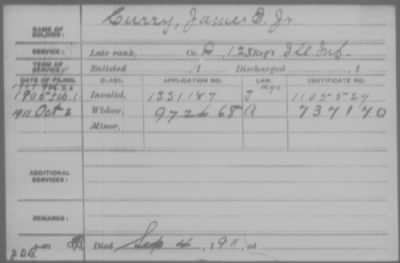 NAME OF SOLDIER: Curry, James E. Jr.
SERVICE: Late rank, Co. D, 123 Reg't Ill Inf.
TERM OF SERVICE: Enlisted , 1 Discharged , 1
DATE OF FILING. CLASS. APPLICATION NO. LAW. CERTIFICATE NO.
Invalid, 1331187 J
1911 Oct 2 Widow, 972668 A 737170
Minor,
ADDITIONAL SERVICES:
REMARKS:
Died Sep 4, 1911, at